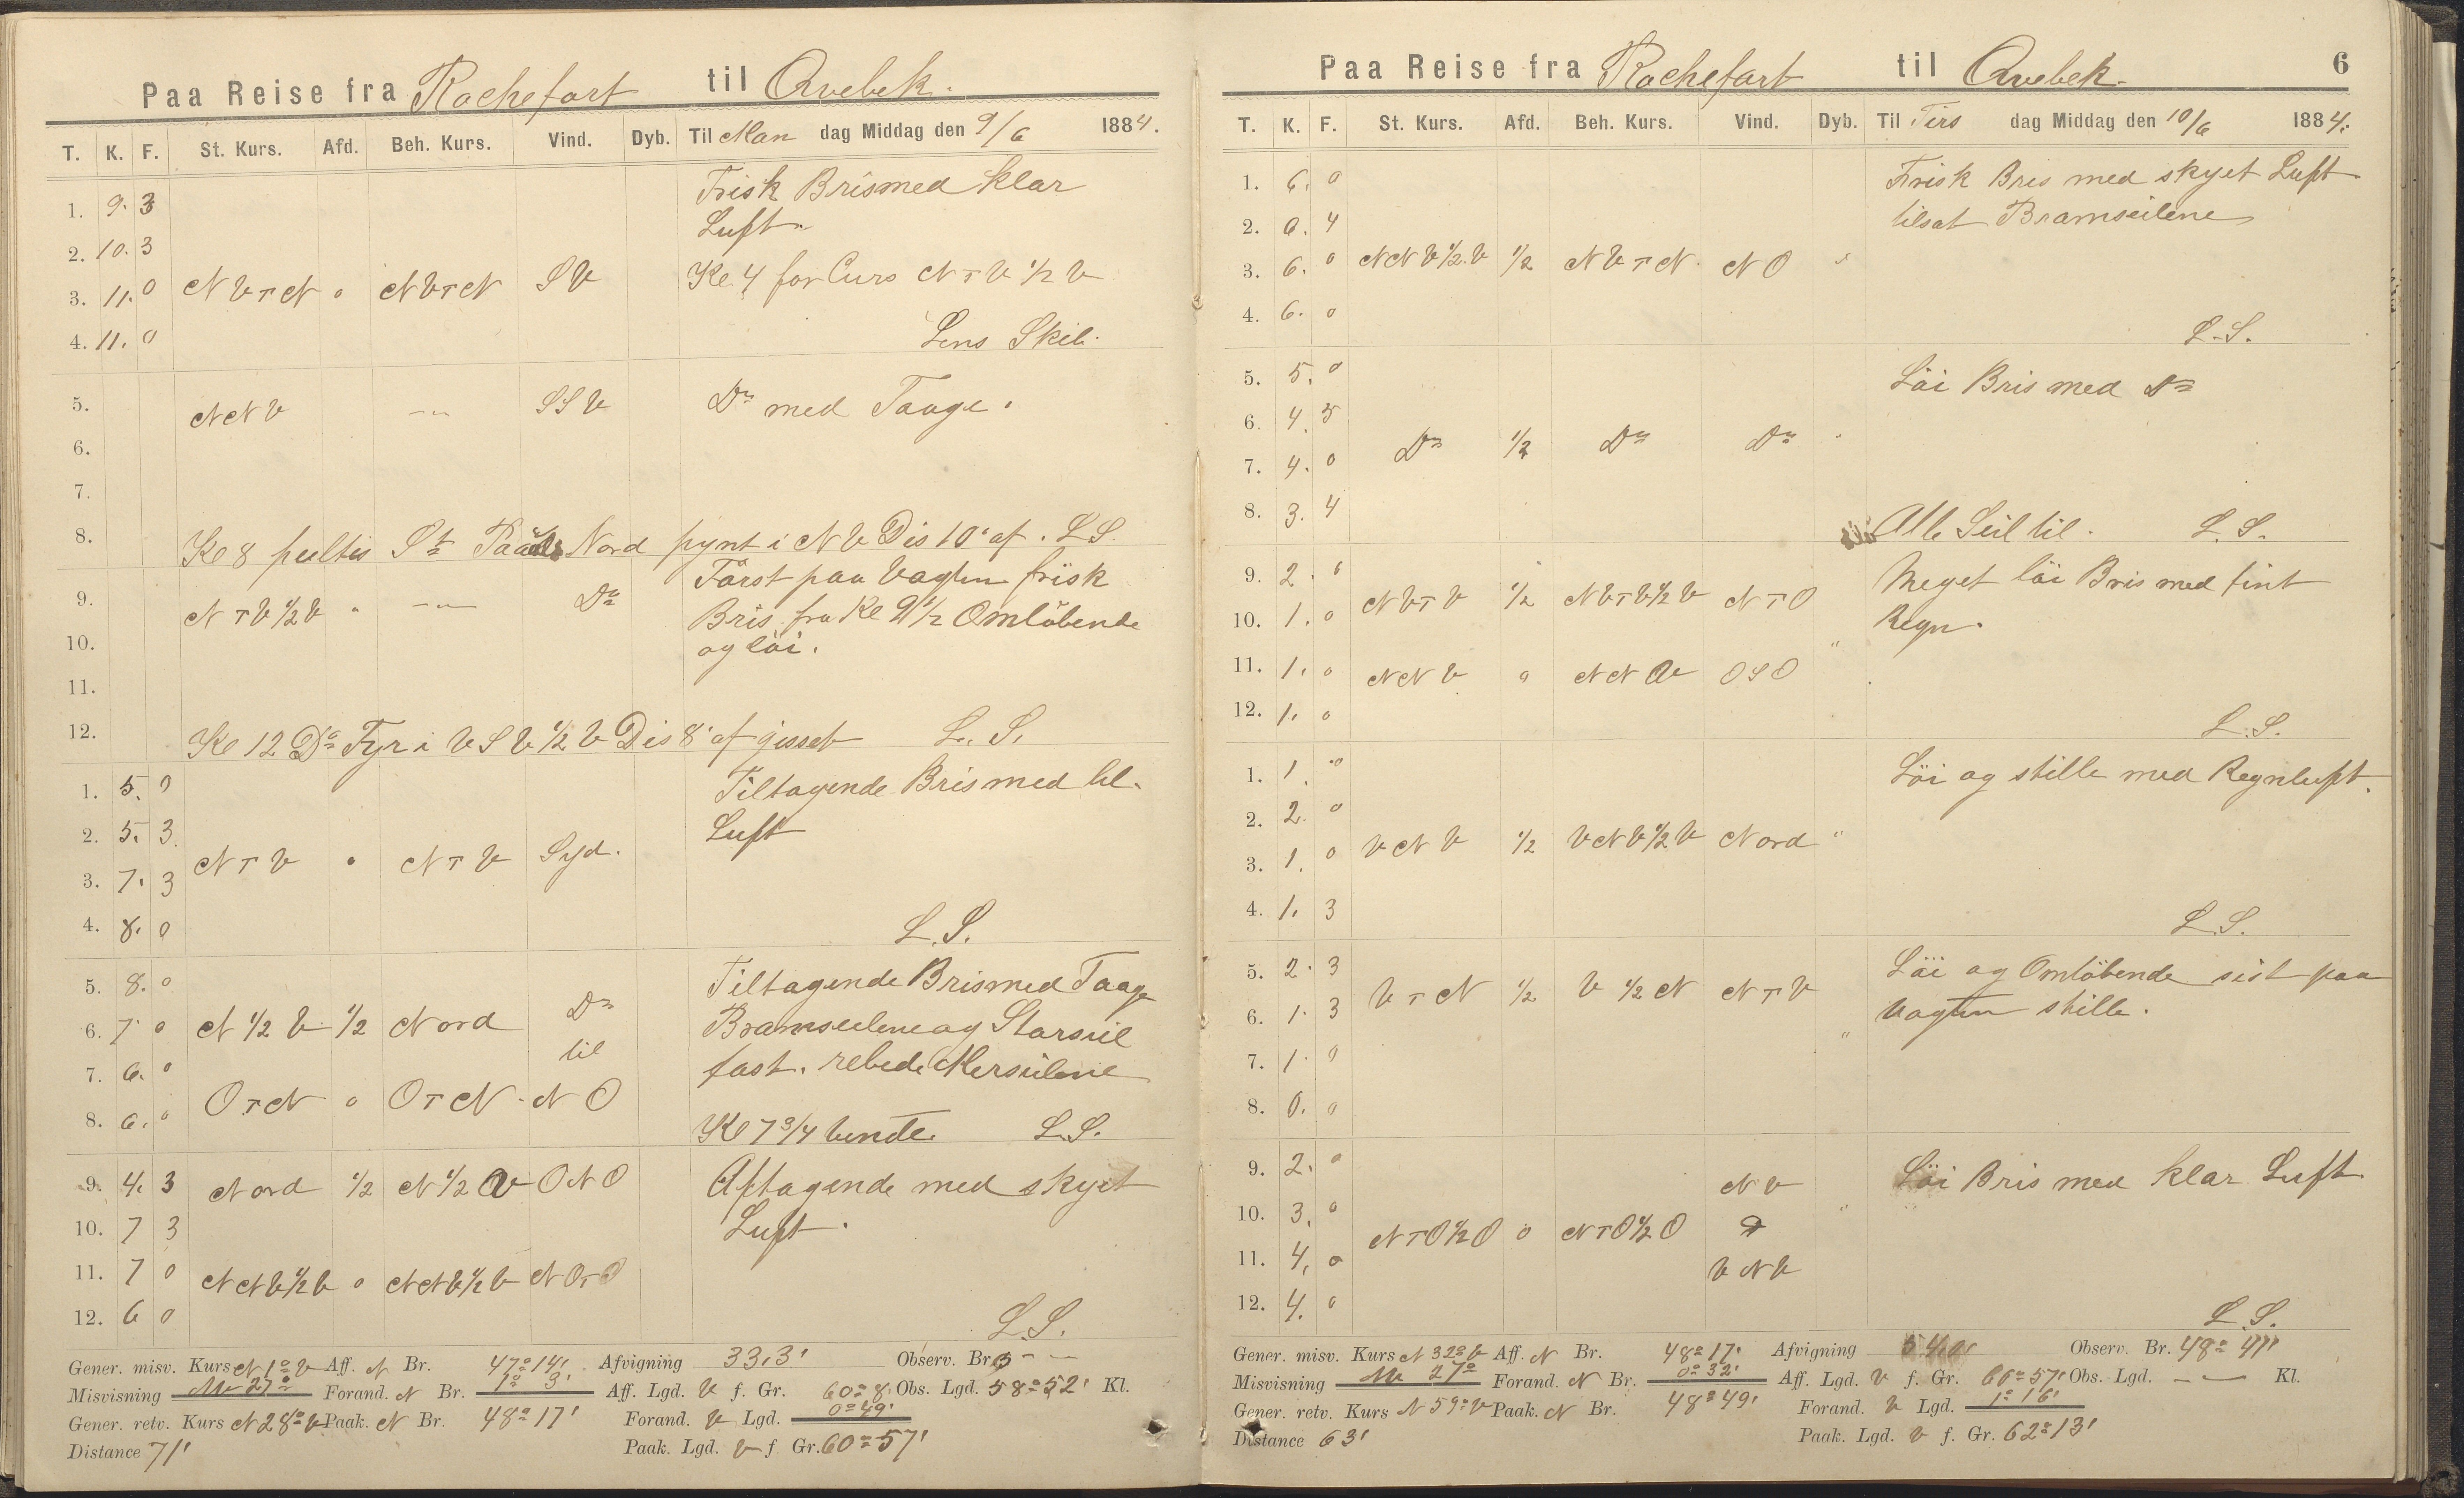 Paa Reise fra Rochefort til Qvebek.
T. K. F. St. Kurs. Afd. Beh. Kurs. Vind. Dyb. Til Man dag Middag den 9/6 1884.
Frisk Bris med klar
1. 9. 3 Luft
2. 10. 3
3. 11. 0 N V T N 0 N V T N S V Kl. 4 for Curs N T V 1/2 V
4. 11. 0 Lens Skib.
5. N N V -"- S S V Do med Taage.
6.
7.
8. Kl 8 peiltes St Paals Nord pynt i N V Dis 10' af. L S.
Først paa Vagten frisk
9. N T V 1/2 V " -"- Do Bris fra Kl 9 1/2 Omløbende
10. og løi.
11.
12. Kl 12 Do Fyr i V S V 1/2 V Dis 8' af gisset L. S.
1. 5. 0 Tiltagende Bris med til.
2. 5. 3 Luft
3. 7. 3 N T V " N T V Syd.
4. 8. 0 L. S.
5. 8. 0 Tiltagende Bris med Taage
6. 7 0 N 1/2 V 1/2 Nord Do Bramseilene og Storseil
7. 6. 0 til fast. rebede Merseilene
8. 6. 0 O T N 0 O T N N O
Kl 7 3/4 vendte. L. S.
9. 4. 3 Nord 1/2 N 1/2 V O N O Aftagende med skyet
10. 7 3 Luft.
11. 7 0 N N V 1/2 V 0 N N V 1/2 V N O T O
12. 6 0 L. S.
Gener. misv. Kurs N 1° V Aff. N Br. 47° 14' Afvigning 33,3' Observ. Br. - -
Misvisning 27° Forand. N Br. 1° 3' Aff. Lgd. V f. Gr. 60° 8' Obs. Lgd. 58° 52' Kl.
Gener. retv. Kurs N 28° V Paak. N Br. 48° 17' Forand. V Lgd. 0° 49'
Distance 71' Paak. Lgd. V f. Gr. 60° 57'
Paa Reise fra Rochefort til Qvebek. 6
T. K. F. St. Kurs. Afd. Beh. Kurs. Vind. Dyb. Til Tirs dag Middag den 10/6 1884.
1. 6. 0 Frisk Bris med skyet Luft
2. 6. 4 tilsat Bramseilene
3. 6. 0 N N V 1/2 V 1/2 N V T N. N O "
4. 6. 0 L. S.
5. 5. 0 Løi Bris med Do
6. 4. 5
7. 4. 0 Do 1/2 Do Do "
8. 3. 4 Alle Seil til. L. S.
9. 2. Meget løi Bris med fint
10. 1. 0 N V T V 1/2 N V T V 1/2 V N T O Regn.
11. 1. 0 N N V 0 N N V O S O
12. 1. 0 L. S.
1. 1. 0 Løi og stille med Regnluft.
2. 2. 0
3. 1. 0 V N V 1/2 V N V 1/2 V Nord "
4. 1. 3 L. S.
5. 2. 3 Løi og Omløbende sist paa
6. 1. 3 V T N 1/2 V 1/2 N N T V Vagten stille.
7. 1. 0
8. 0. 0
9. 2. 0 N V Løi Bris med klar Luft
10. 3. 0 N T O 1/2 O 0 N T O 1/2 O
11. 4. 0 V N V
12. 4. 0 L. S.
Gener. misv. Kurs N 32° V Aff. N Br. 48° 17' Afvigning 54,0' Observ. Br. 48° 41'
Misvisning 27° Forand. N Br. 0° 32' Aff. Lgd. V f. Gr. 60° 57' Obs. Lgd. - - Kl.
Gener. retv. Kurs N 59° V Paak. N Br. 48° 49' Forand. V Lgd. 1° 16'
Distance 63' Paak. Lgd. V f. Gr. 62° 13'